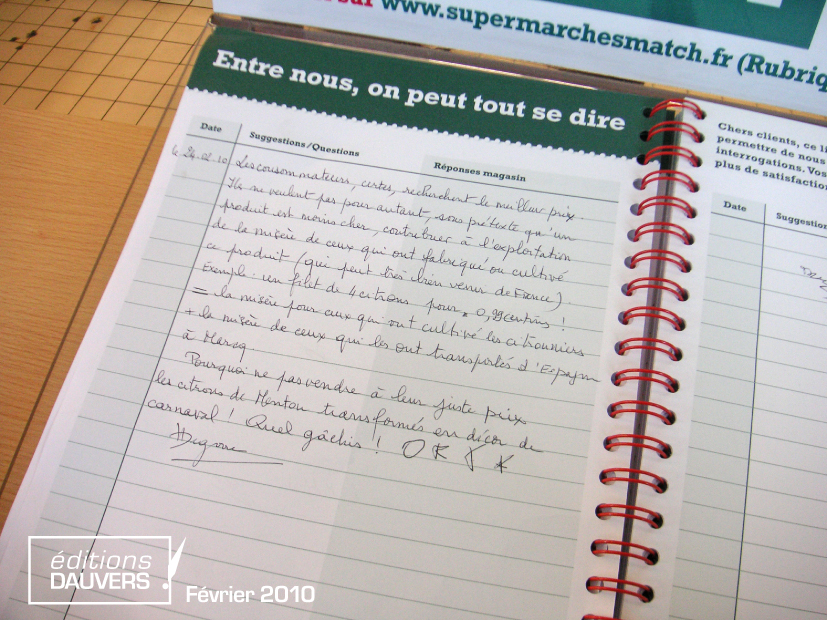 sur www.supermarchesmatch.fr (Rubriq
Entre nous, on peut tout se dire
Date
Suggestions/Questions
Réponses magasin
24.02.10 Les consommateurs, certes, recherchent le meilleur prix.
Ils ne veulent pas pour autant, sous prétexte qu'un
produit est moins cher, contribuer à l'exploitation
de la misère de ceux qui ont fabriqué ou cultivé
ce produit (qui peut très bien venir de France)
Exemple : un filet de 4 citrons pour 0,99 centins !
= la misère pour ceux qui ont cultivé les citronniers
+ la misère de ceux qui les ont transportés d'Espagne
à Marcq
Pourquoi ne pas vendre à leur juste prix
les citrons de Menton transformés en décor de
carnaval ! Quel gâchis !
Chers clients, ce li
permettre de nous
interrogations. Vos
plus de satisfaction
Date
Suggestion
éditions
DAUVERS
Février 2010